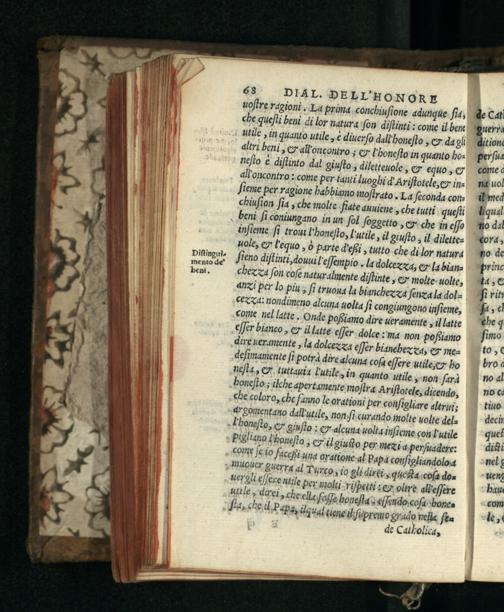 68 DIAL. DELL'HONORE
uostre ragioni. La prima conchiusione adunque sia,
che questi beni di lor natura son distinti: come il bene
utile, in quanto utile, è diuerso dall'honesto, & da gli
altri beni, & all'oncontro; & l'honesto in quanto ho-
nesto è distinto dal giusto, diletteuole, & equo, &
all'oncontro: come per tanti luoghi d'Aristotele, & in-
sieme per ragione habbiamo mostrato. La seconda con
chiusion sia, che molte fiate auuiene, che tutti questi
beni si coniungano in un sol soggetto, & che in esso
insieme si troui l'honesto, l'utile, il giusto, il dilette-
uole, & l'equo, ò parte d'essi, tutto che di lor natura
sieno distinti, douui l'essempio. la dolcezza, & la bian-
chezza son cose naturalmente distinte, & molte uolte,
anzi per lo piu, si truoua la bianchezza senza la dol-
cezza: nondimeno alcuna uolta si congiungono insieme,
come nel latte. Onde possiamo dire ueramente, il latte
esser bianco, & il latte esser dolce: ma non possiamo
dire ueramente, la dolcezza esser bianchezza, & me-
desimamente si potrà dire alcuna cosa essere utile, & ho
nesta, & tuttauia l'utile, in quanto utile, non sarà
honesto; ilche apertamente mostra Aristotele, dicendo,
che coloro, che fanno le orationi per consigliare altrui;
argomentano dall'utile, non si curando molte uolte del-
l'honesto, & giusto: & alcuna uolta insieme con l'utile
pigliano l'honesto, & il giusto per mezi a persuadere:
come se io facessi una oratione al Papa consigliandolo a
muouer guerra al Turco, io gli direi, questa cosa do-
uergli essere utile per molti rispetti: & oltre all'essere
utile, direi, che ella fosse honesta. essendo cosa hone-
sta, che il Papa, ilqual tiene il supremo grado nella fe-
de Catholica,
Distingui-
mento de'
beni.